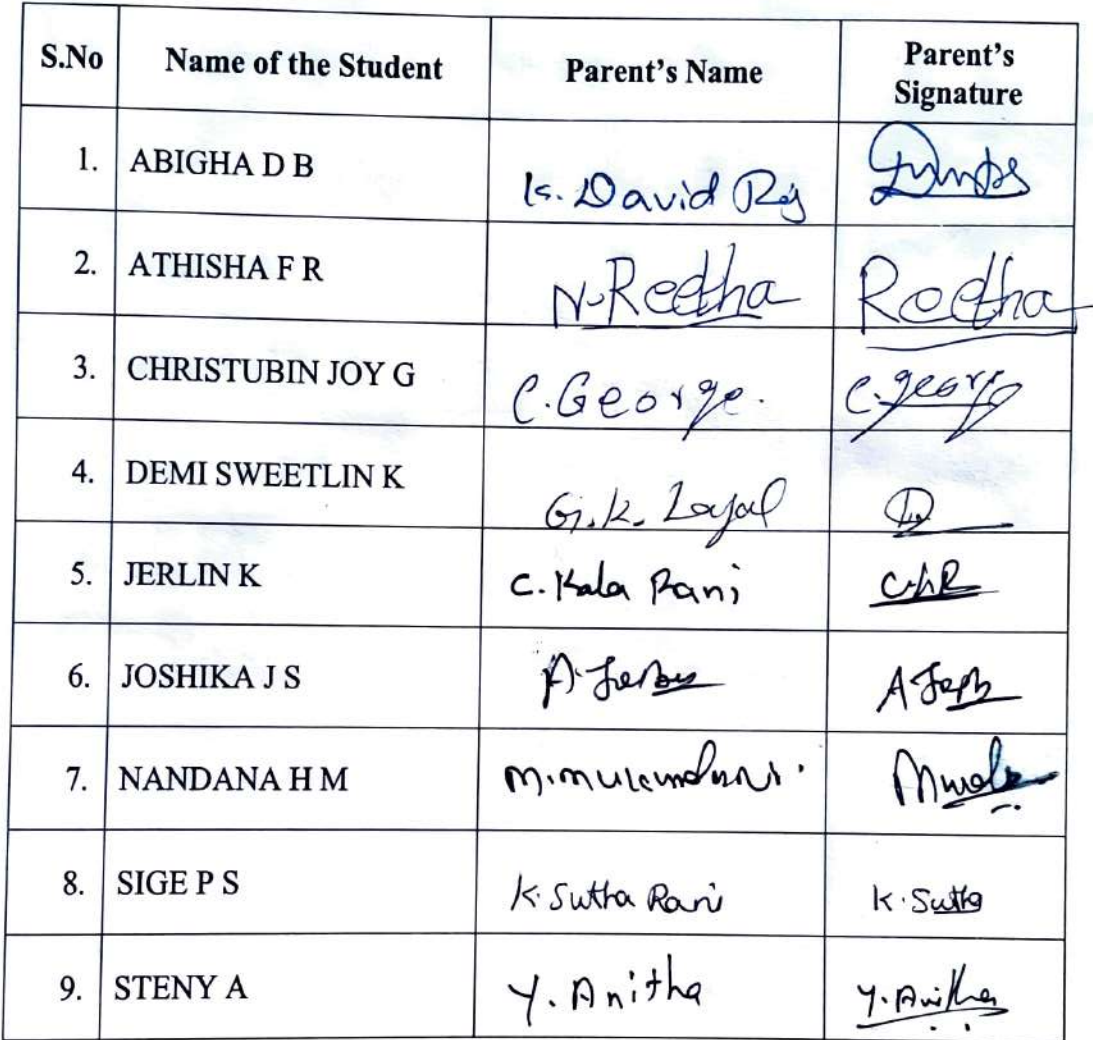 S.No Name of the Student Parent's Name Parent's Signature
1. ABIGHA D B K. David Raj
2. ATHISHA F R N. Reetha Reetha
3. CHRISTUBIN JOY G C. George. C. George
4. DEMI SWEETLIN K G. K. Layal
5. JERLIN K C. Kala Rani C.k.R
6. JOSHIKA J S
7. NANDANA H M
8. SIGE P S K. Sutha Rani K. Sutha
9. STENY A Y. Anitha Y. Anitha